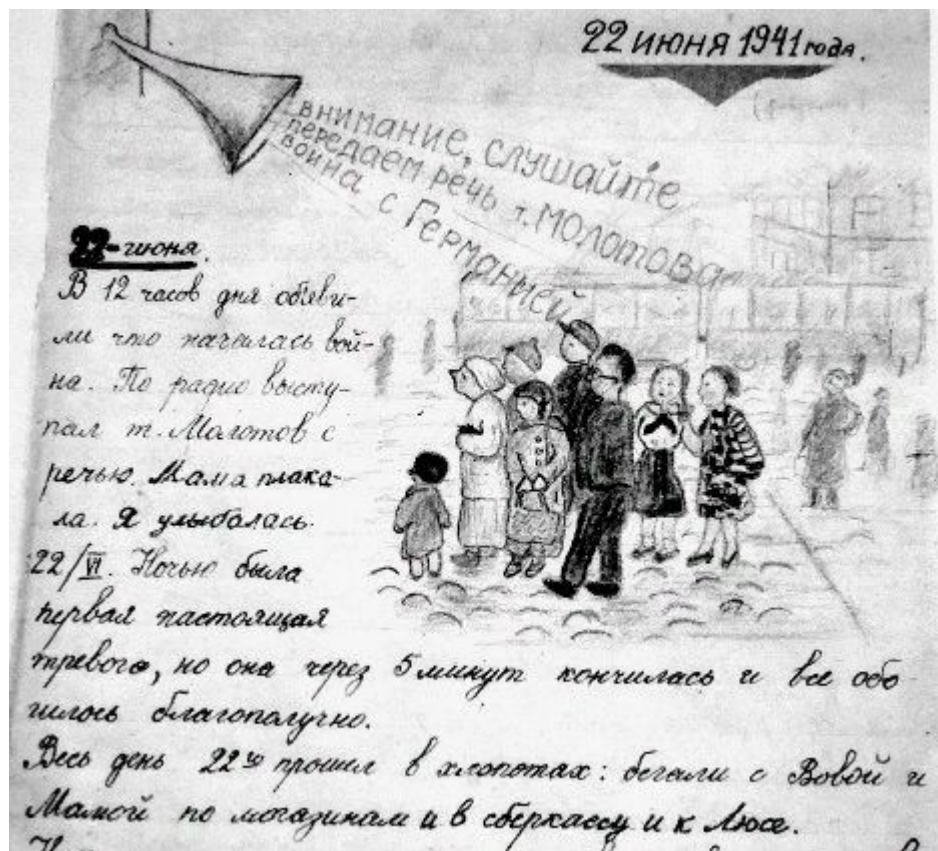 22 июня 1941 года.
внимание, слушайте
передаем речь т. Молотова
война с Германией
22-июня.
В 12 часов дня обяви-
ли что началась вой-
на. По радио высту-
пал т. Молотов с
речью. Мама плака-
ла. Я улыбалась.
22/VI. Ночью была
первая настоящая
тревога, но она через 5 минут кончилась и все обо-
шлось благополучно.
Весь день 22го прошел в хлопотах: бегали с Вовой и
Мамой по магазинам и в сберкассу и к Люсе.